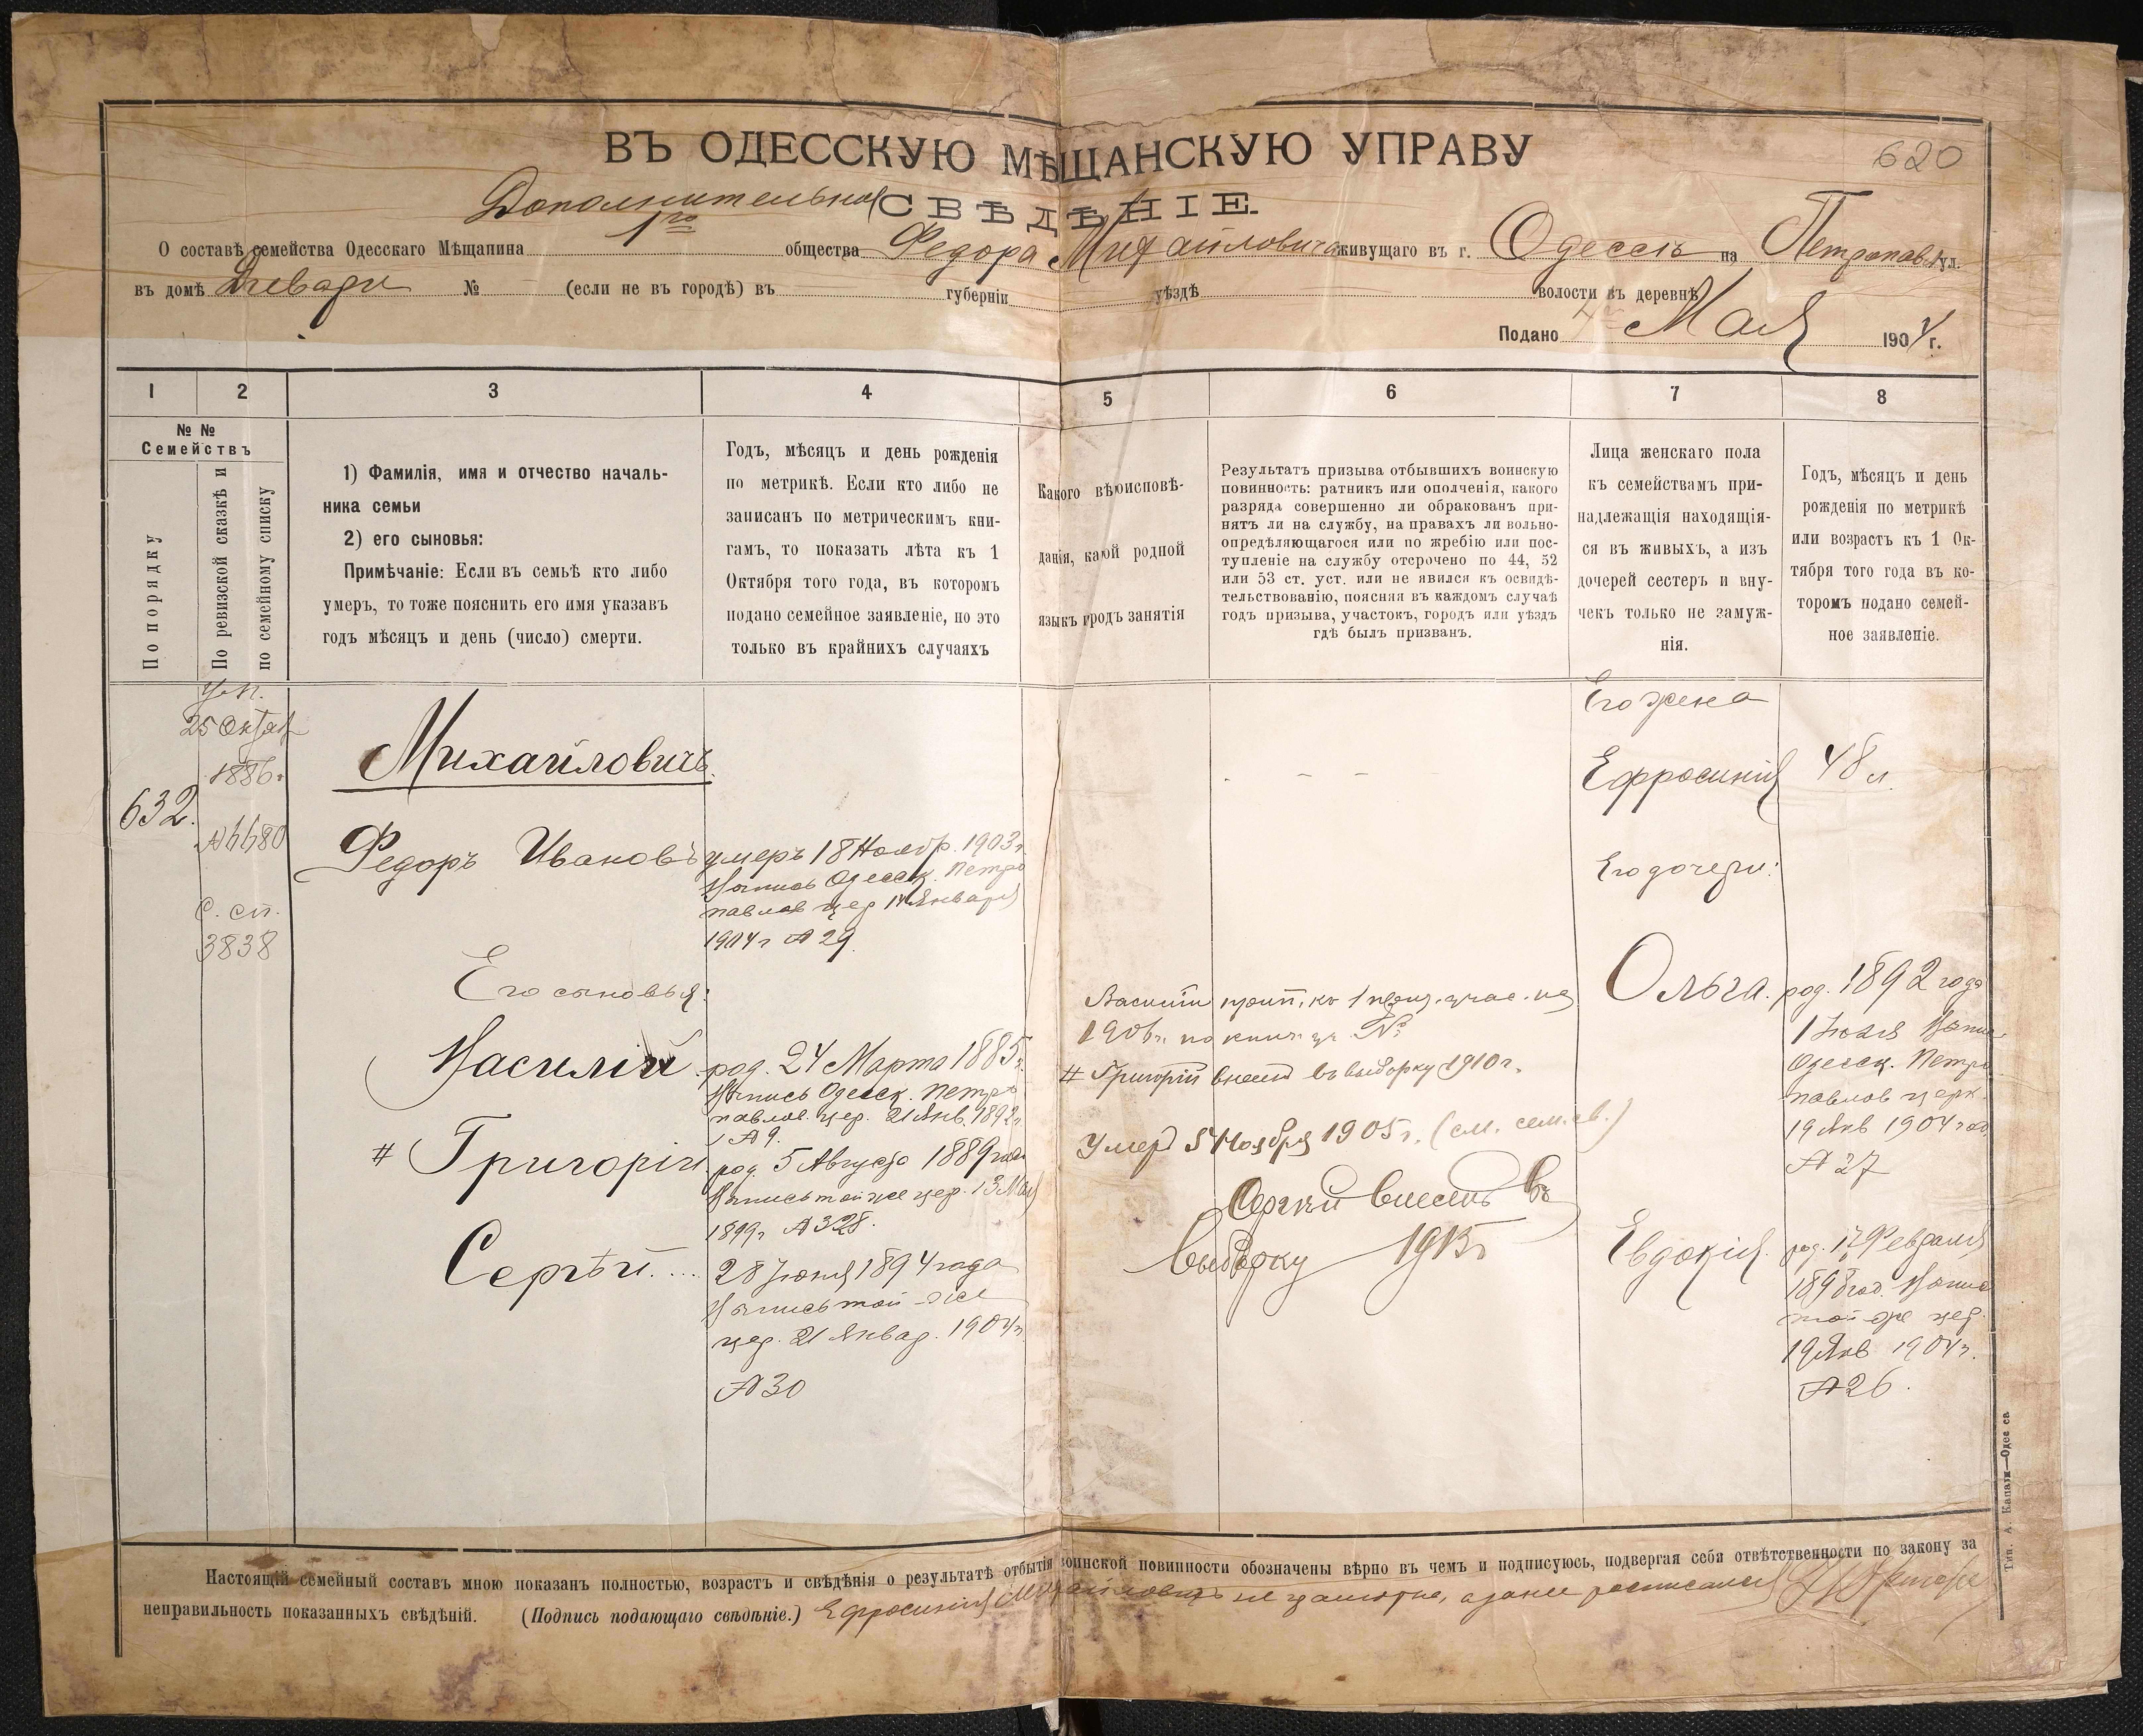 ВЪ ОДЕССКУЮ МѢЩАНСКУЮ УПРАВУ
620
Дополнительное СВѢДѢНІЕ.
О составѣ семейства Одесскаго Мѣщанина 1го общества Федора Михайловича живущаго въ г. Одессѣ на Петропавл. ул.
въ домѣ № (если не въ городѣ) въ губерніи уѣздѣ волости въ деревнѣ
Подано Мая 1904 г.
1 2 3 4 5 6 7 8
№ №
Семействъ
По порядку
По ревизской сказкѣ и
по семейному списку
1) Фамилія, имя и отчество началь-
ника семьи
2) его сыновья:
Примѣчаніе: Если въ семьѣ кто либо
умеръ, то тоже пояснить его имя указавъ
годъ мѣсяцъ и день (число) смерти.
Годъ, мѣсяцъ и день рожденія
по метрикѣ. Если кто либо не
записанъ по метрическимъ кни-
гамъ, то показать лѣта къ 1
Октября того года, въ которомъ
подано семейное заявленіе, но это
только въ крайнихъ случаяхъ
Какого вѣроисповѣ-
данія, какой родной
языкъ родъ занятія
Результатъ призыва отбывшихъ воинскую
повинность: ратникъ или ополченія, какого
разряда совершенно ли обракованъ при-
нятъ ли на службу, на правахъ ли вольно-
опредѣляющагося или по жребію или пос-
тупленіе на службу отсрочено по 44, 52
или 53 ст. уст. или не явился къ освидѣ-
тельствованію, поясняя въ каждомъ случаѣ
годъ призыва, участокъ, городъ или уѣздъ
гдѣ былъ призванъ.
Лица женскаго пола
къ семействамъ при-
надлежащія находящія-
ся въ живыхъ, а изъ
дочерей сестеръ и вну-
чекъ только не замуж-
нія.
Годъ, мѣсяцъ и день
рожденія по метрикѣ
или возрастъ къ 1 Ок-
тября того года въ ко-
торомъ подано семей-
ное заявленіе.
25 Октяб
1886г.
632.
С. сп.
3838
Михайловичъ
Федоръ Ивановъ
умеръ 18 Ноябр. 1903г.
Выпись Одесск. Петро
павлов цер 14 Января
1904г № 29.
Его сыновья:
Василій
род. 24 Марта 1885г.
Выпись Одесск. Петро
павлов. цер. 21 Янв. 1892г.
№ 9.
# Григорій
род. 5 Августа 1889 года
Выпись той же цер. 13 Мая
1899г № 328.
Сергѣй....
28 Іюня 1894 года
Выпись той же
цер. 21 Январ. 1904г.
№ 30
Василій прип. къ 1 приз. учас. на
1906г. по книг за №
# Григорій внесенъ въ выборку 1910г.
Умеръ 5 Ноября 1905г. (см. сем. св.)
Сергѣй внесенъ въ
выборку 1915г
Его жена
Ефросинія 48 л.
Его дочери:
Ольга. род. 1892 года
1 Іюля Выпись
Одесск. Петро
павлов церк.
19 Янв 1904 год.
№ 27
Евдокія. род. 17 Февраля
1898 год. Выпись
той же цер.
19 Янв 1904г.
№ 26.
Настоящій семейный составъ мною показанъ полностью, возрастъ и свѣдѣнія о результатѣ отбытія воинской повинности обозначены вѣрно въ чемъ и подписуюсь, подвергая себя отвѣтственности по закону за
неправильность показанныхъ свѣдѣній. (Подпись подающаго свѣдѣніе.) Ефросинія Михайловичъ не грамотна, а за нее росписался
Тип. А.